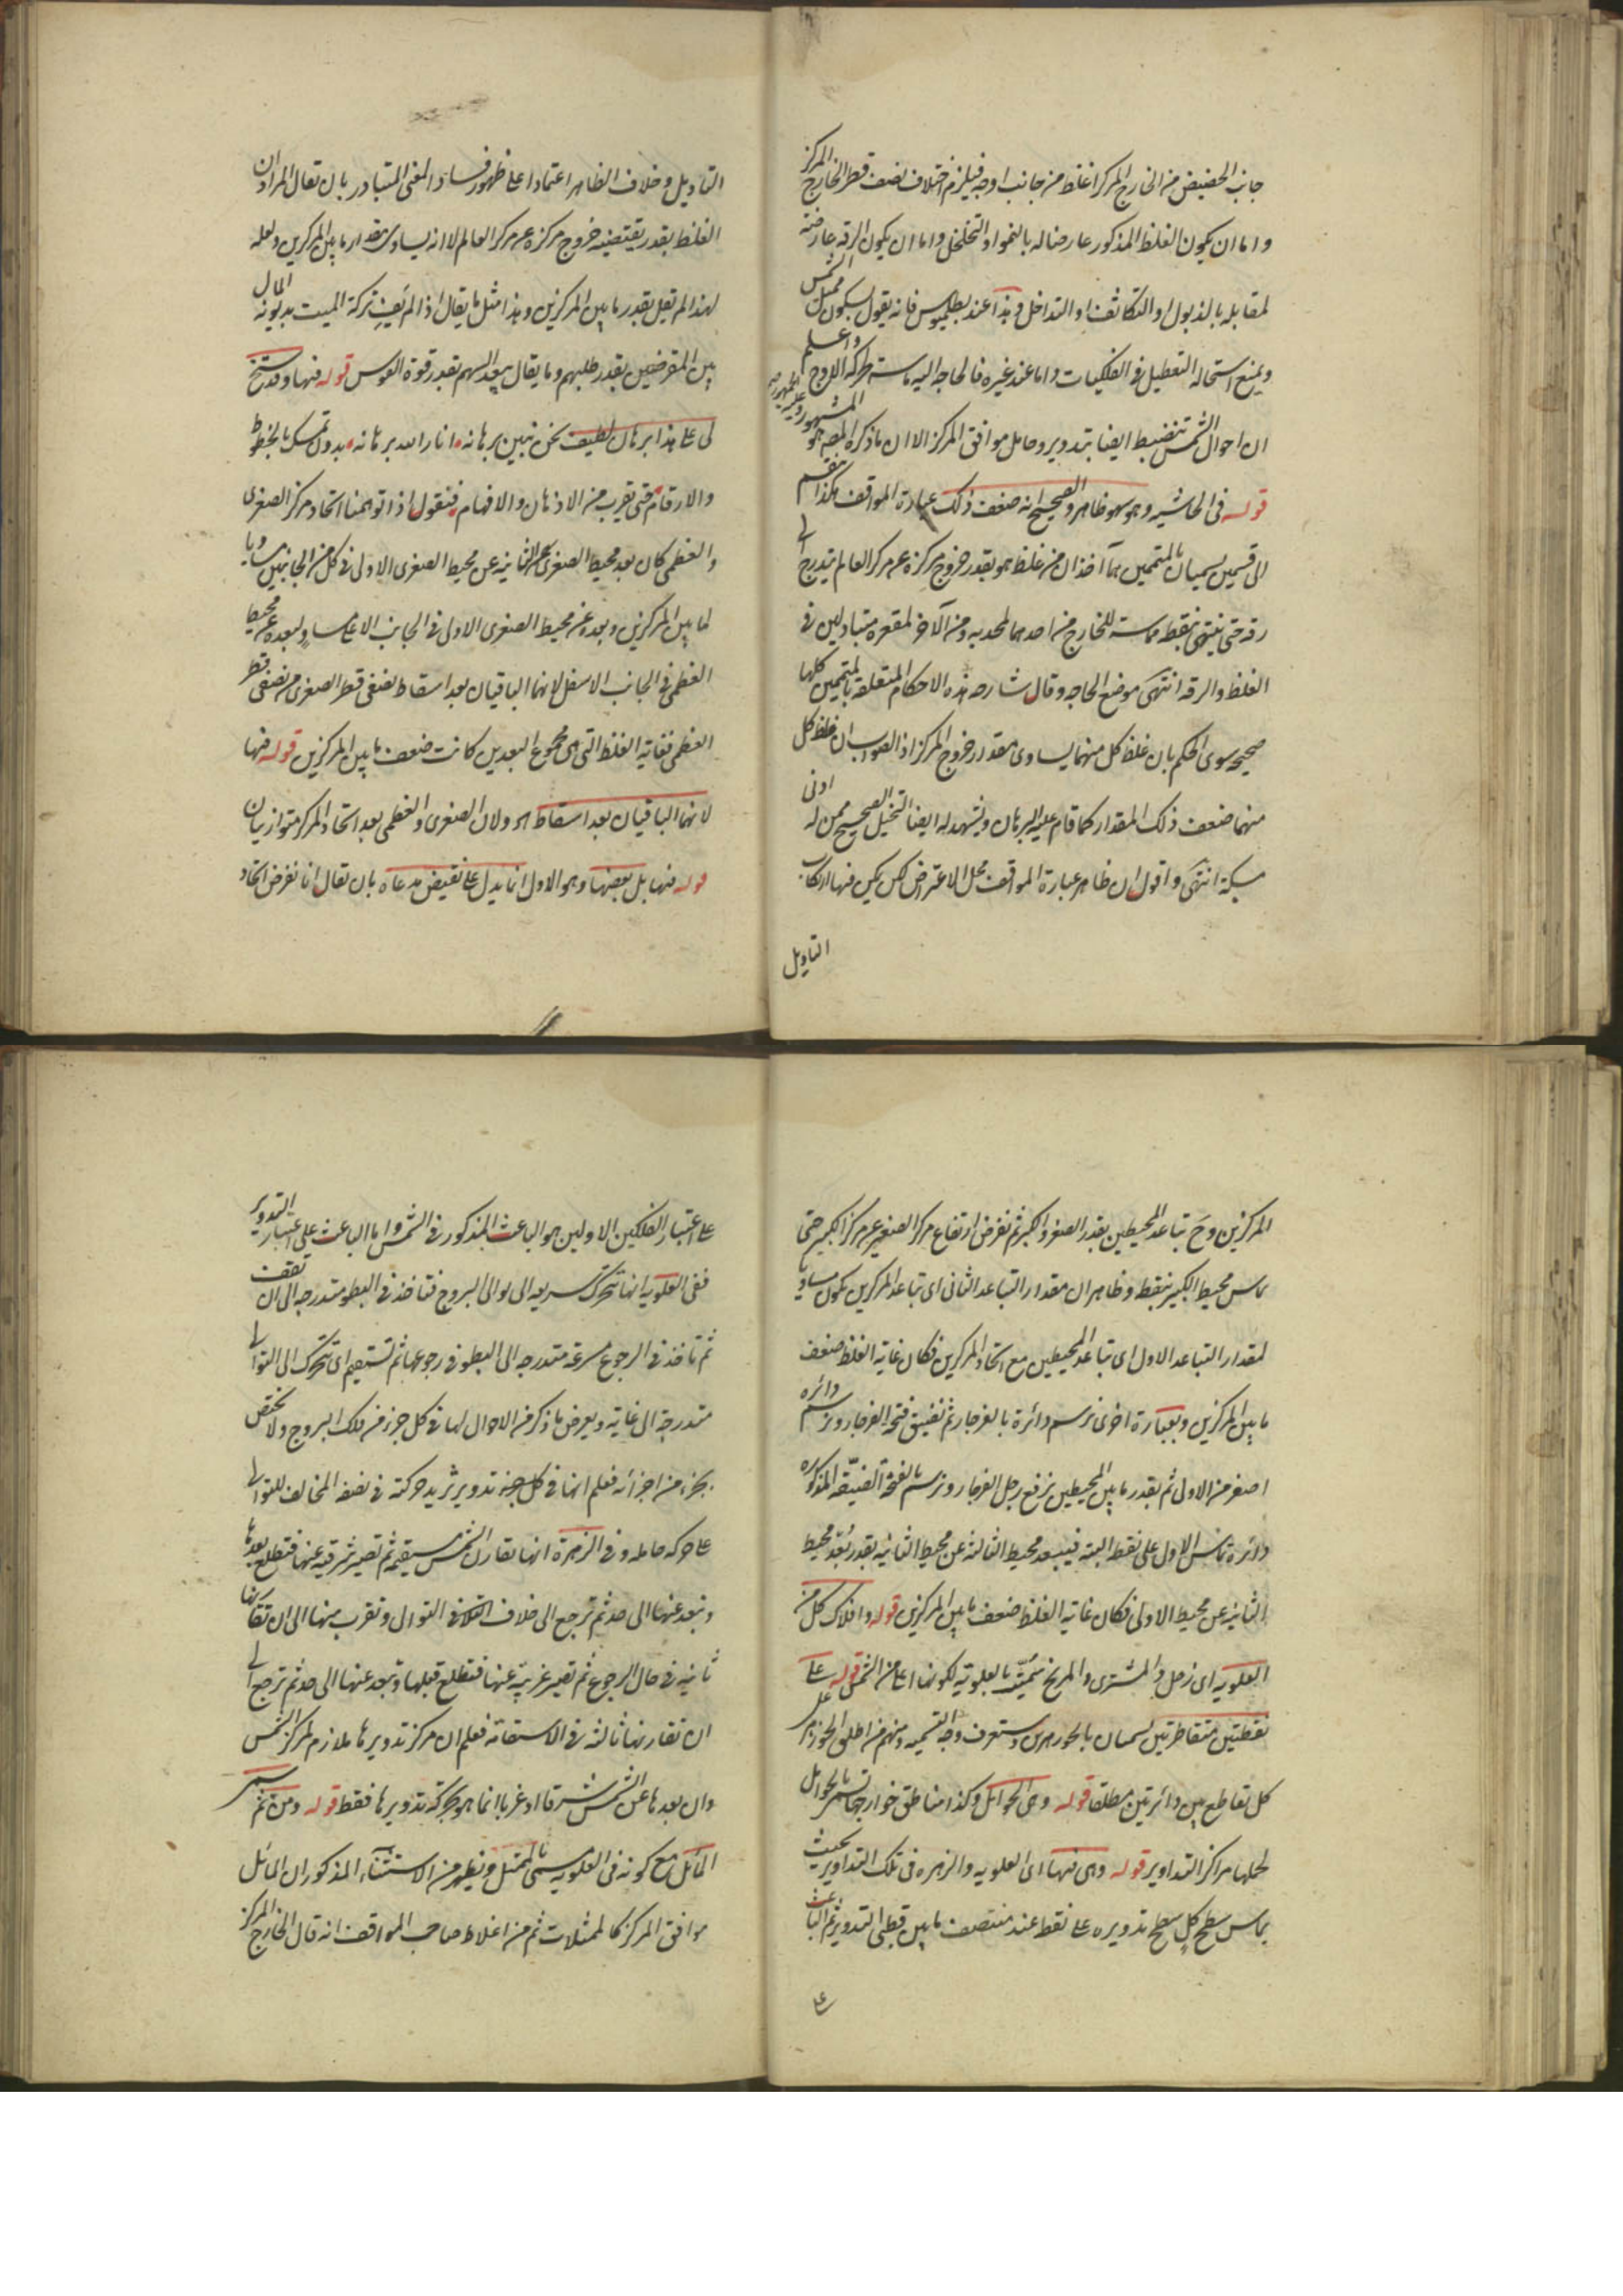 جانب الحضيض من الخارج المركز اغلظ من جانب اوجه فيلزم اختلاف نصف قطر الخارج المركز
واما ان يكون الغلظ المذكور عارضا له بالنمو او التخلخل واما ان يكون الرقه عارضة
لمقابله بالذبول او التكاثف او التداخل وهذا عند بطلميوس فانه يقول بسكون ممثل الشمس
ويمنع استحالة التعطيل في الفلكيات واما عند غيره فالحاجه اليه ماسة لحركة الاوج واعلم
ان احوال الشمس تنضبط ايضا بتدوير وحامل موافق المركز الا ان ما ذكره المص هو المشهور وعليه الجمهور
قوله في الحاشيه وهو سهو ظاهر والصحيح انه ضعف ذلك عبارة المواقف هكذا تنقسم
الى قسمين يسميان بالمتممين هما آخذان من غلظ هو بقدر خروج مركزه عن مركز العالم يتدرج الى
رقه حتى ينتهي بنقطة مماسة للخارج من احدهما لمحدبه ومن الآخر لمقعره متبادلين في
الغلظ والرقه انتهى موضع الحاجه وقال شارحه هذه الاحكام المتعلقه بالمتممين كلها
صحيحه سوى الحكم بان غلظ كل منهما يساوى مقدار خروج المركز اذ الصواب ان غلظ كل
منهما ضعف ذلك المقدار كما قام عليه البرهان ويشهد له ايضا التخيل الصحيح ممن له ادنى
مسكة انتهى واقول ان ظاهر عبارة المواقف محل الاعتراض لكن يمكن فيها ارتكاب
التاويل
التاويل وخلاف الظاهر اعتمادا على ظهور فساد المعنى المتبادر بان تقال المراد ان
الغلظ بقدر يقتضيه خروج مركزه عن مركز العالم لا انه يساوى مقدار ما بين المركزين ولعله
لهذا لم يقل بقدر ما بين المركزين وهذا مثل ما يقال اذا لم يف تركة الميت بديونه المال
بين المقرضين بقدر طلبهم وما يقال بعد السهم بقدر قوة القوس قوله فيها وقد سنح
لى على هذا برهان لطيف نحن نبين برهانه انار الله برهانه بدون تمسك بالخطوط
والارقام حتى يقرب من الاذهان والافهام فنقول اذا توهمنا اتحاد مركز الصغرى
والعظمى كان بعد محيط الصغرى الثانيه عن محيط الصغرى الاولى في كل من الجانبين مساويا
لما بين المركزين وبعده عن محيط الصغرى الاولى في الجانب الاعلى مساو لبعده عن محيط
العظمى في الجانب الاسفل لانهما الباقيان بعد اسقاط نصفى قطر الصغرى من نصفى قطر
العظمى فغاية الغلظ التي هي مجموع البعدين كانت ضعف ما بين المركزين قوله فيها
لانهما الباقيان بعد اسقاط اه ولان الصغرى والعظمى بعد اتحاد المركز متوازيان
قوله فيها بل بعضها وهو الاول انما يدل على نقيض مدعاه بان تقال انا نفرض اتحاد
المركزين وح تباعد المحيطين بقدر الصغر والكبر ثم نفرض ارتفاع مركز الصغير عن مركز الكبير حتى
يماس محيط الكبير بنقطه وظاهر ان مقدار التباعد الثاني اى تباعد المركزين يكون مساويا
لمقدار التباعد الاول اى تباعد المحيطين مع اتحاد المركزين فكان غاية الغلظ ضعف
ما بين المركزين وبعبارة اخرى نرسم دائرة بالفرجار ثم نضيق فتحة الفرجار ونرسم دائره
اصغر من الاول ثم بقدر ما بين المحيطين نرفع رجل الفرجار ونرسم بالفتحة الضيقه المذكوره
دائرة تماس الاول على نقطه البته فيبعد محيط الثالثه عن محيط الثانيه بقدر بعد محيط
الثانيه عن محيط الاولى فكان غاية الغلظ ضعف ما بين المركزين قوله وافلاك كل من
العلويه اى زحل والمشترى والمريخ سميت بالعلويه لكونها اعلى من الشمس قوله على
نقطتين متقاطرتين يسميان بالجوزهرين وستعرف وجه التسميه ومنهم من اطلق الجوزهر على
كل تقاطع بين دائرتين مطلقا قوله وهي الحوامل وكذا مناطق خوارجها تسمى بالحوامل
لحملها مراكز التداوير قوله وهي فيها اى العلويه والزهره في تلك التداوير بحيث
يماس سطح كل سطح تدويره على نقطه عند منتصف ما بين قطبى التدوير ثم الباعث
على
على اعتبار الفلكين الاولين هو الباعث المذكور في الشمس واما الباعث على اعتبار التدوير
ففي العلويه انها تتحرك سريعه الى توالى البروج فتاخذ في البطو متدرجه الى ان تقف
ثم تاخذ في الرجوع مسرعة متدرجه الى البطو في رجوعها ثم تستقيم اى تتحرك الى التوالى
متدرجة الى غايته ويعرض ما ذكر من الاحوال لها في كل جزء من فلك البروج ولا يختص
بجزء من اجزائه فعلم انها في كل جزء تدوير يزيد حركته في نصفه المخالف للتوالى
على حركة حامله وفي الزهرة انها تقارن الشمس مستقيمة ثم تصير شرقيه عنها فتطلع بعدها
وتبعد عنها الى حد ثم ترجع الى خلاف التوالى وتقرب منها الى ان تقارنها
ثانيه في حال الرجوع ثم تصير غربيه عنها فتطلع قبلها وتبعد عنها الى حد ثم ترجع الى
ان تقارنها ثالثه في الاستقامة فعلم ان مركز تدويرها ملازم لمركز الشمس
وان بعدها عن الشمس شرقا او غربا انما هو بحركة تدويرها فقط قوله ومن ثم سمى
المائل مع كونه في العلويه سمى بالممثل ويظهر من الاستثناء المذكور ان المائل
موافق المركز كالممثلات ثم من اغلاط صاحب المواقف انه قال الخارج المركز